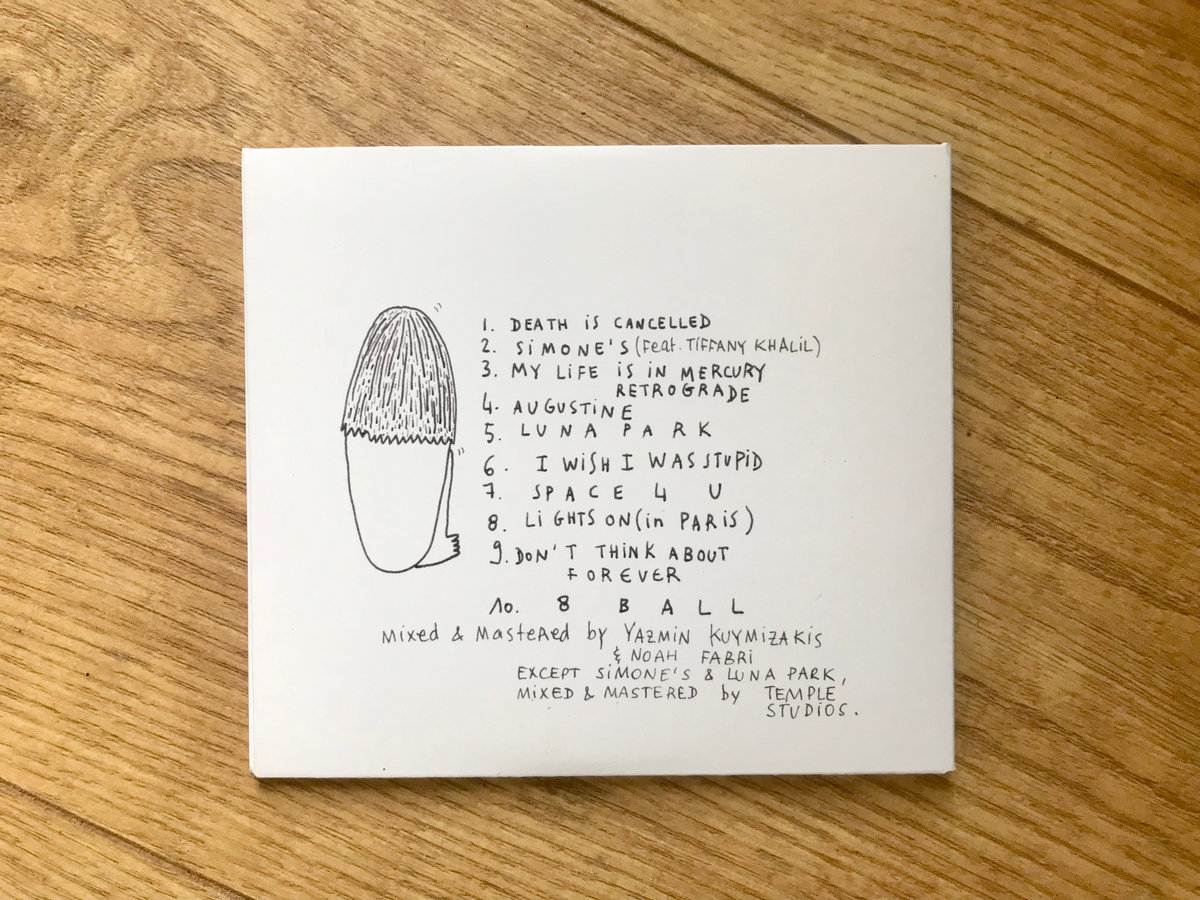 1. DEATH iS CANCELLED
2. SiMONE'S (Feat. TiFFANY KHALiL)
3. MY LiFE iS iN MERCURY
RETROGRADE
4. AUGUSTiNE
5. LUNA PARK
6. I WiSH I WAS STUPiD
7. SPACE 4 U
8. LiGHTS ON (in PARiS)
9. DON'T THiNK ABOUT
FOREVER
10. 8 BALL
Mixed & MasteRed by YAZMiN KUYMiZAKiS
& NOAH FABRi
EXCEPT SiMONE'S & LUNA PARK,
MiXED & MASTERED by TEMPLE
STUDiOS.